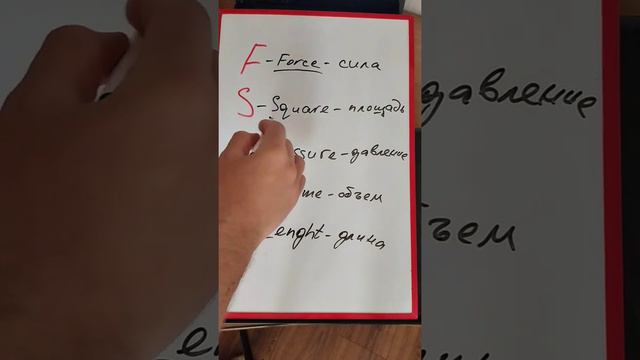 F - Force - сила
S - Square - площадь
ssure - давление
me - объем
enght - длина
давление
ъем